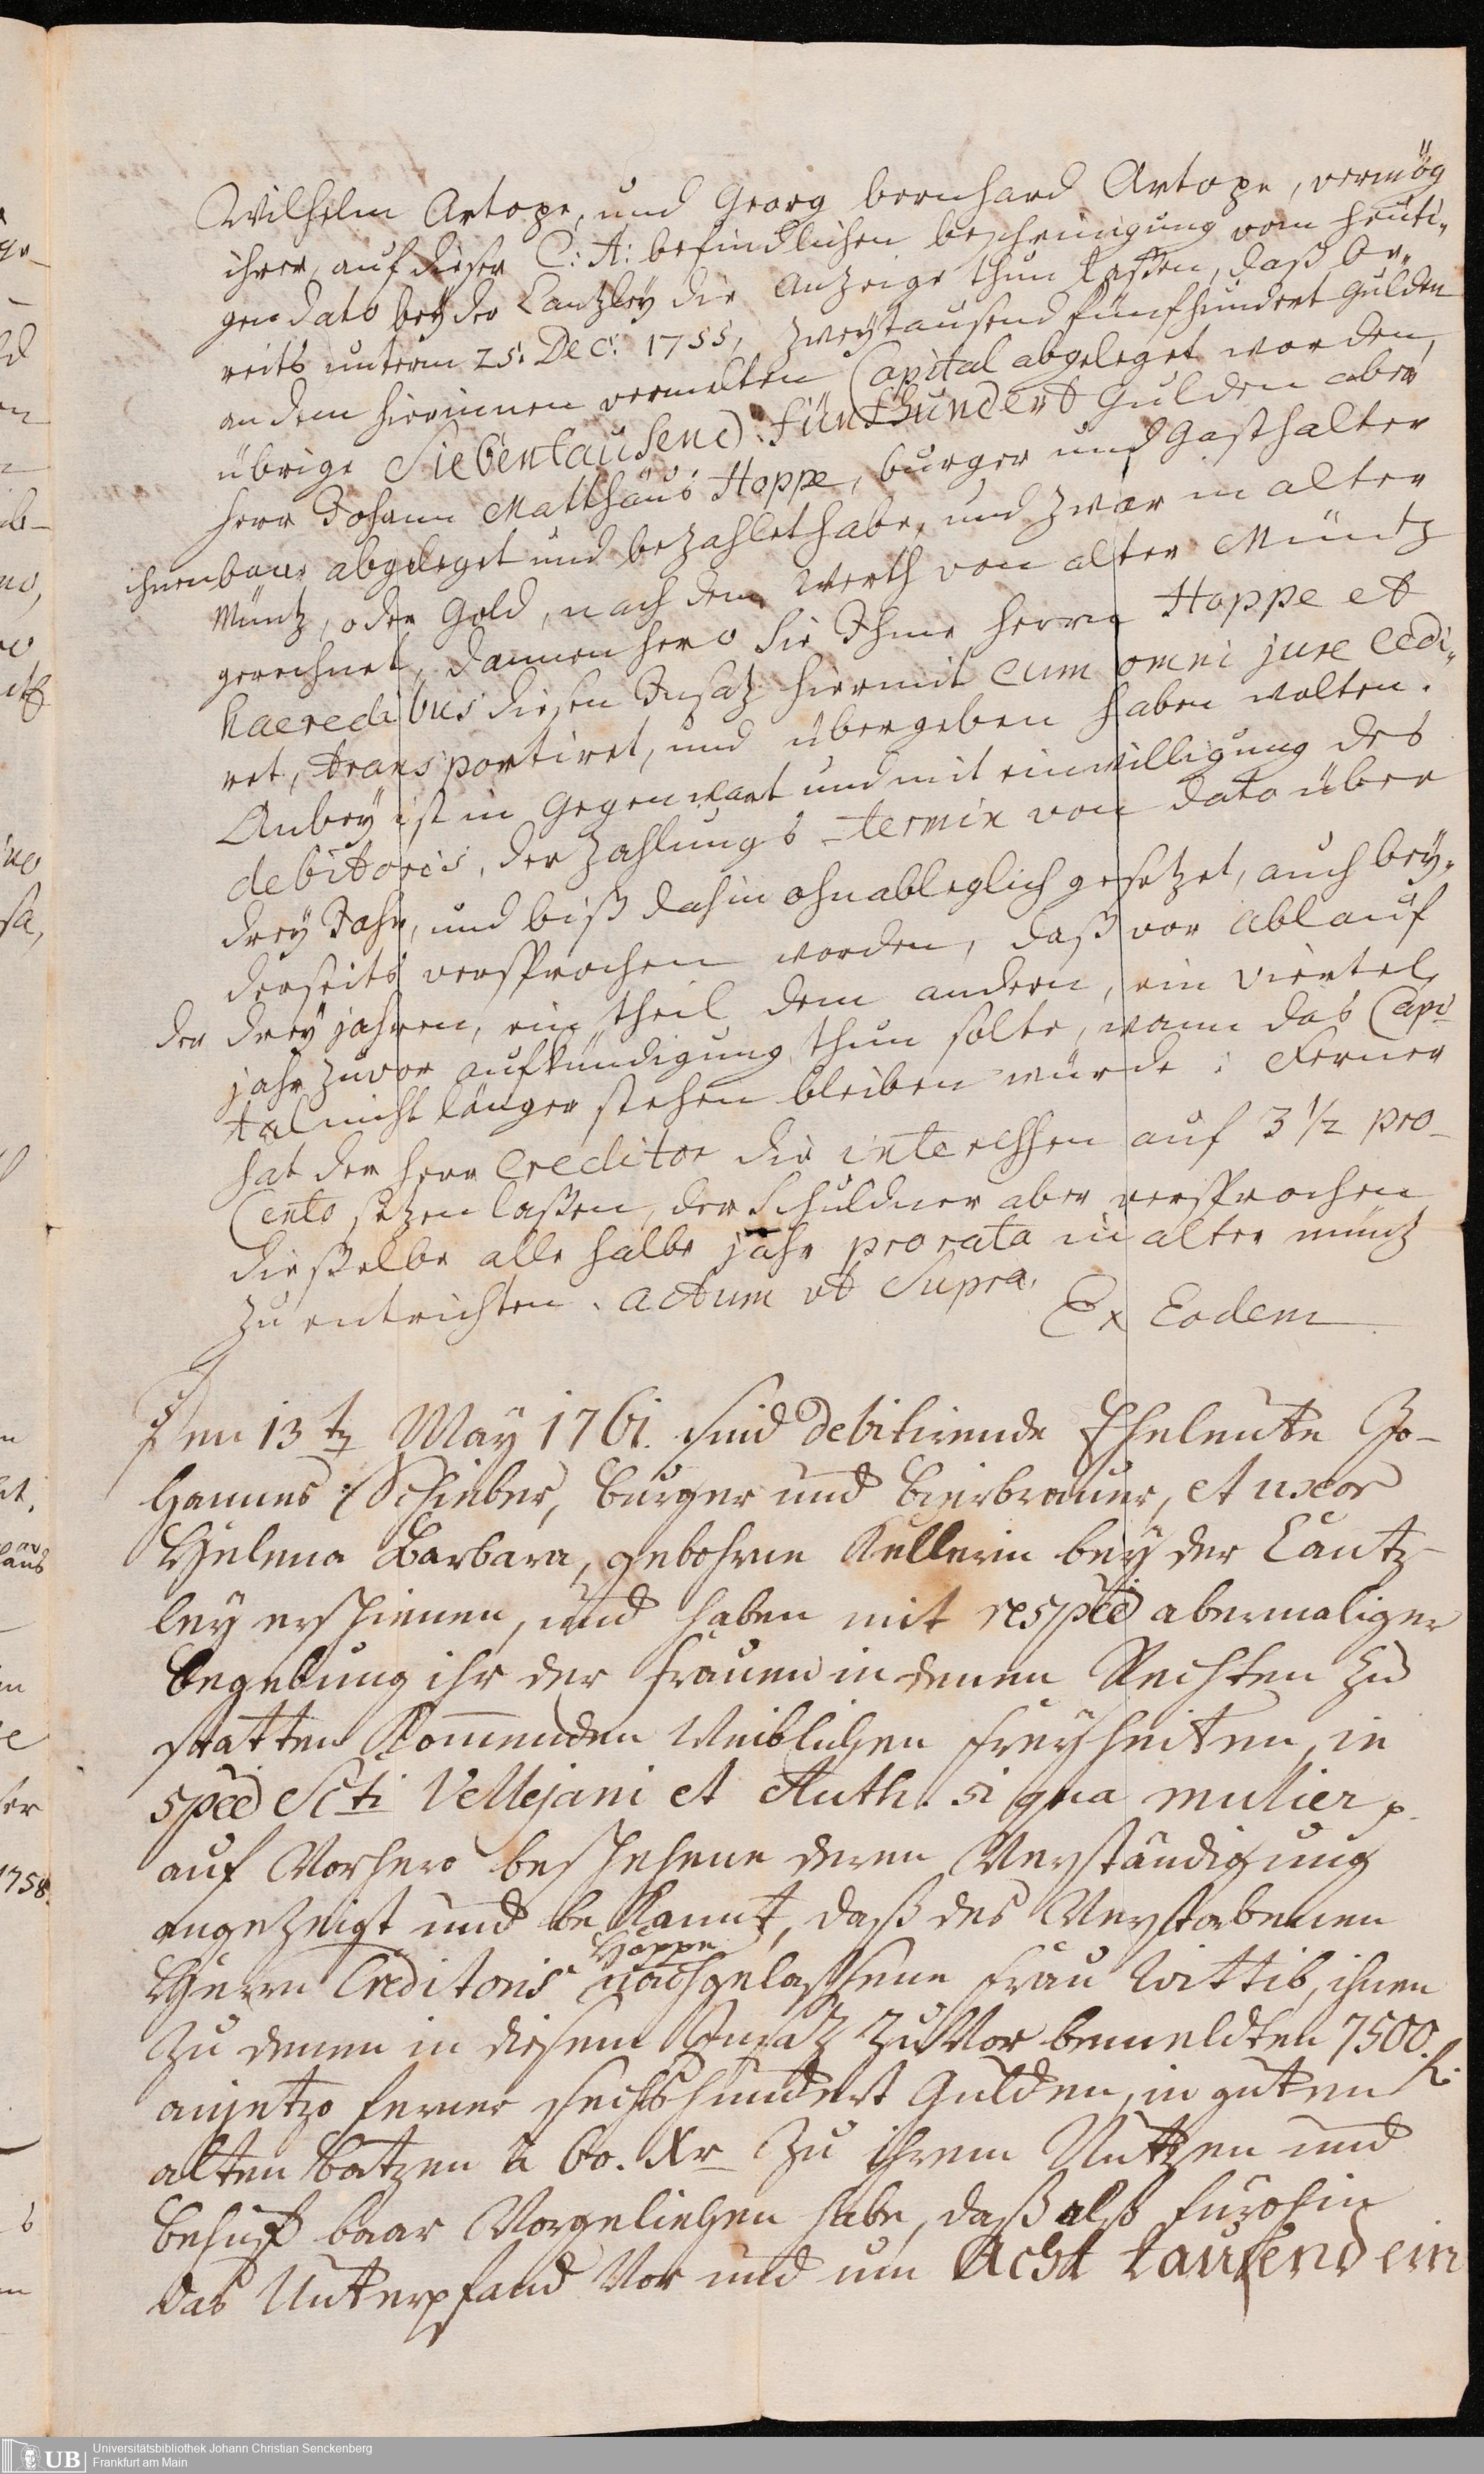 Wilhelm Artope, und Georg bernhard Artope, vermög
ihrer, auf dieser C: A: befindlichen bescheinigung vom heuti„
gen dato bey der Cantzley die Anzeige thun laßen, daß be„
reits unterm 25. Dec: 1755, zweytausend fünfhundert gulden
an dem hierinnen vermelten Capital abgeleget worden,
übrige Siebentausend fünfhundert gulden aber
Herr Johann Matthäus Hoppe, burger und Gasthalter
ihnen baar abgeleget und bezahlet habe, und zwar in alter
Müntz, oder Gold, nach dem Werth von alter Müntz
gerechnet, dannenhero Sie Ihme Herrn Hoppe et
haeredibus diesen Insatz hiermit cum omni jure cedi„
ret, transportiret, und übergeben haben wolten.
Anbey ist in Gegenwart und mit einwilligung des
debitoris, der Zahlungs-termin von dato über
drey Jahr, und biß dahin ohnableglich gesetzet, auch bey„
derseits versprochen worden, daß vor ablauf
der drey jahren, ein theil dem andern, ein viertel
jahr zuvor aufkündigung thun solte, wann das Capi
tal nicht länger stehen bleiben würde; Ferner
hat der Herr Creditor die interessen auf 3 1/2 pro
Cento setzen laßen, der Schuldner aber versprochen
dießelbe alle halbe jahr pro rata in alter müntz
zu entrichten. actum ut Supra.
Ex Eodem
Den 13 t. May 1761. sind debitirende Eheleute Jo-
hannes Schieber, Burger und Bierbrauer, et uxor
Helena Barbara, gebohrne Kellerin bey der Cantz-
ley erschienen, und haben mit respee abermaliger
Begebung ihr der Frauen in denen Rechten zu
statten kommenden Weiblichen Freyheiten, in
specie Scti Vellejani et Auth. si qua mulier p.
auf Vorhero beschehene deren Verständigung
angezeigt und bekannt, daß des Verstorbenen
Herrn Creditoris Hoppe nachgelassene Frau Wittib, ihnen
zu denen in diesem Insatz zu Vor bemeldten 7500. f.
anjetzo ferner sechshundert Gulden, in guten
alten Batzen à 60. Xr zu ihrem Nutzen und
Behuf baar Vorgeliehen habe, daß also furohin
das Unterpfand Vor und um Acht tausend ein
1758.
Universitätsbibliothek Johann Christian Senckenberg
Frankfurt am Main
UB